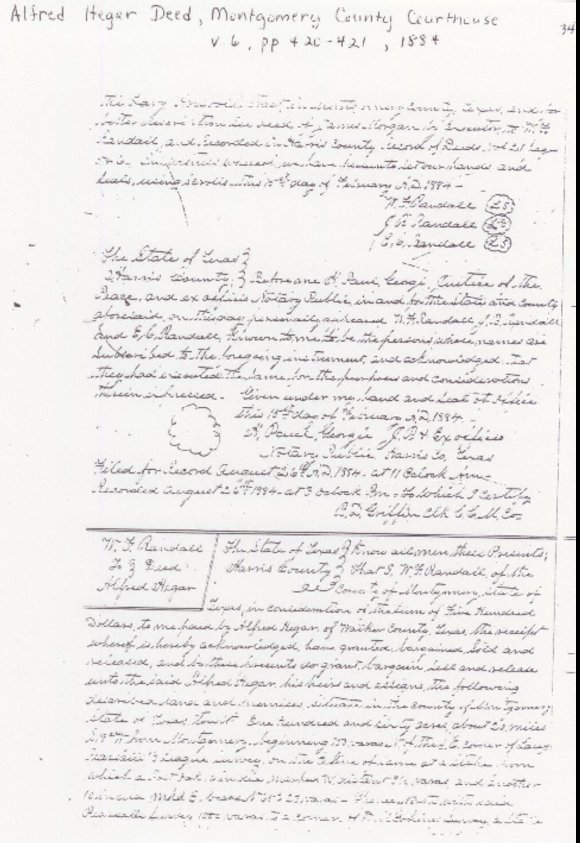 Alfred Hegar Deed, Montgomery County Courthouse
34
v 6, pp 420-421, 1884
County, Texas, and for
deed of James Morgan by Executor, to W. F.
Randall, and Recorded in Harris County record of Deeds
we have hereunto set our hands and
seals, using scrolls this 15th day of February A.D. 1884 -
W. F. Randall L.S.
J. B. Randall L.S.
E. C. Randall L.S.
The State of Texas }
Harris County, } Before me N. Paul, George, Justice of the
Peace, and ex officio Notary Public, in and for the state and County
aforesaid, on this day personally appeared W. F. Randall J. B. Randall
and E. C. Randall, Known to me to be the persons whose names are
subscribed to the foregoing instrument, and acknowledged that
they had executed the same for the purposes and consideration
therein expressed - Given under my hand and seal of Office
this 15th day of February A.D. 1884 -
N. Paul, George J.P. & Ex officio
Notary Public, Harris Co, Texas
Filed for Record August 26th A.D. 1884 - at 11 Oclock Am -
Recorded August 26th 1884 - at 3 Oclock Pm - To which I Certify
B. D. Griffin Clk C. C. M. Co.
W. F. Randall
To } Deed
Alfred Hegar
The State of Texas } Know all men these Presents;
Harris County } That I, W. F. Randall, of the
County of Montgomery, State of
Texas, in Consideration of the sum of Five Hundred
Dollars, to me paid by Alfred Hegar, of Walker County, Texas, the receipt
whereof is hereby acknowledged, have granted, bargained Sold and
released, and by these Presents do grant, bargain, sell and release
unto the said Alfred Hegar, his heirs and assigns, the following
described land and premises, situate in the County of Montgomery,
State of Texas, To wit - One hundred and sixty acres, about 20, miles
from Montgomery, beginning varas of the corner of
League survey, on the line of same at a stake from
which a Post oak in dia, marked W, distant varas, and another
in dia mkd S, bears varas - Thence with said
survey varas to a corner of survey, a stake